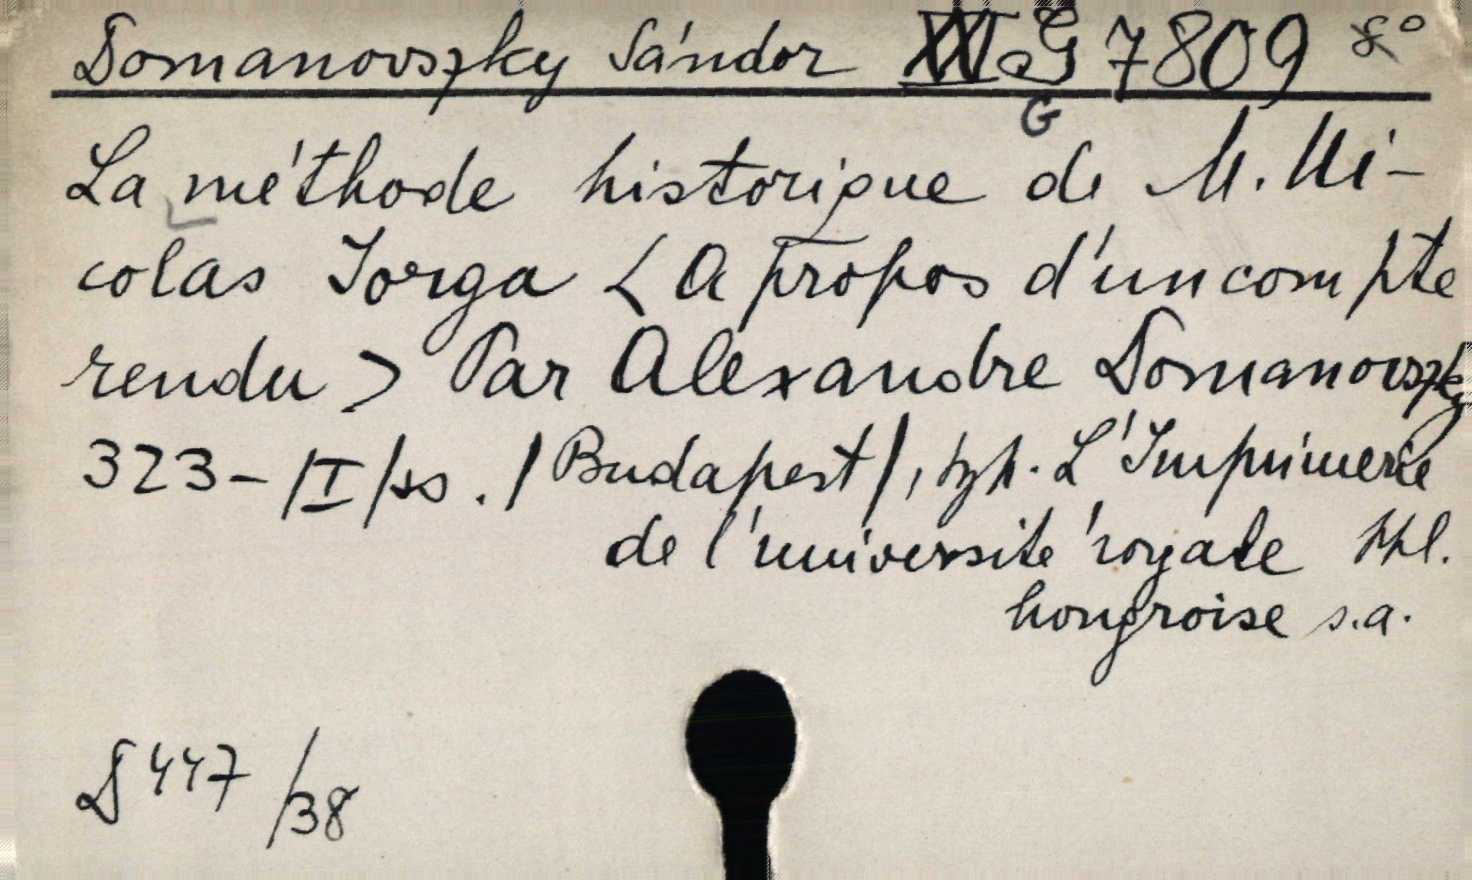 Domanovszky Sándor G 7809 8°
G
La méthode historique de M. Ni-
colas Jorga < A propos d'un compte
rendu > Par Alexandre Domanovszky
323-/I/ss. / Budapest/, typ. L'Imprimerie
de l'université royale
hongroise s.a.
D 447/38